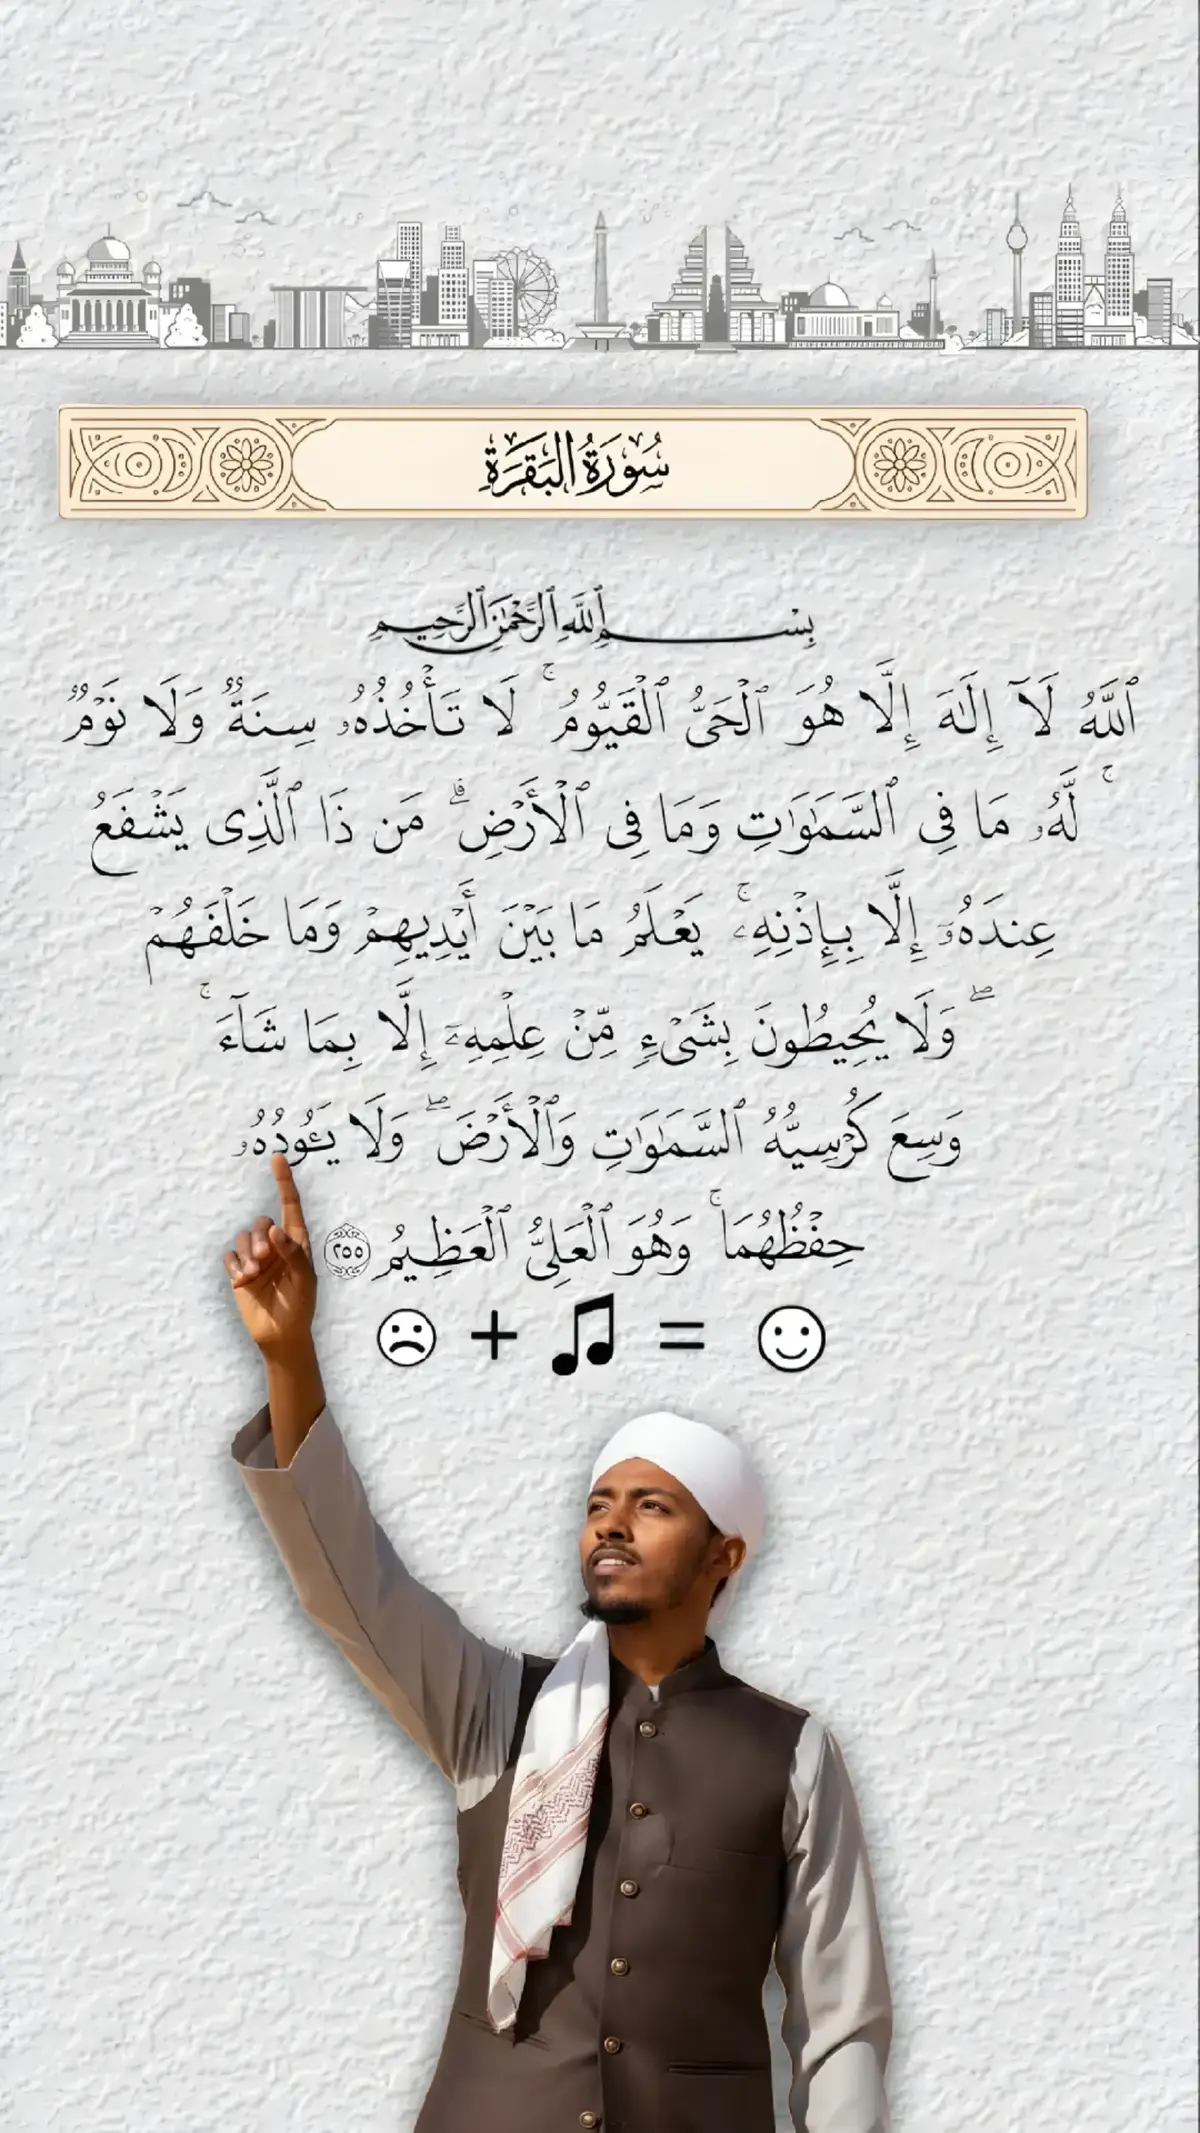 سُورَةُ البَقَرَةِ
بِسْمِ ٱللَّهِ ٱلرَّحْمَٰنِ ٱلرَّحِيمِ
ٱللَّهُ لَآ إِلَٰهَ إِلَّا هُوَ ٱلْحَىُّ ٱلْقَيُّومُ ۚ لَا تَأْخُذُهُۥ سِنَةٌ وَلَا نَوْمٌ
ۚ لَّهُۥ مَا فِى ٱلسَّمَٰوَٰتِ وَمَا فِى ٱلْأَرْضِ ۗ مَن ذَا ٱلَّذِى يَشْفَعُ
عِندَهُۥٓ إِلَّا بِإِذْنِهِۦ ۚ يَعْلَمُ مَا بَيْنَ أَيْدِيهِمْ وَمَا خَلْفَهُمْ
ۖ وَلَا يُحِيطُونَ بِشَىْءٍ مِّنْ عِلْمِهِۦٓ إِلَّا بِمَا شَآءَ ۚ
وَسِعَ كُرْسِيُّهُ ٱلسَّمَٰوَٰتِ وَٱلْأَرْضَ ۖ وَلَا يَـُٔودُهُۥ
حِفْظُهُمَا ۚ وَهُوَ ٱلْعَلِىُّ ٱلْعَظِيمُ ٢٥٥
+ =